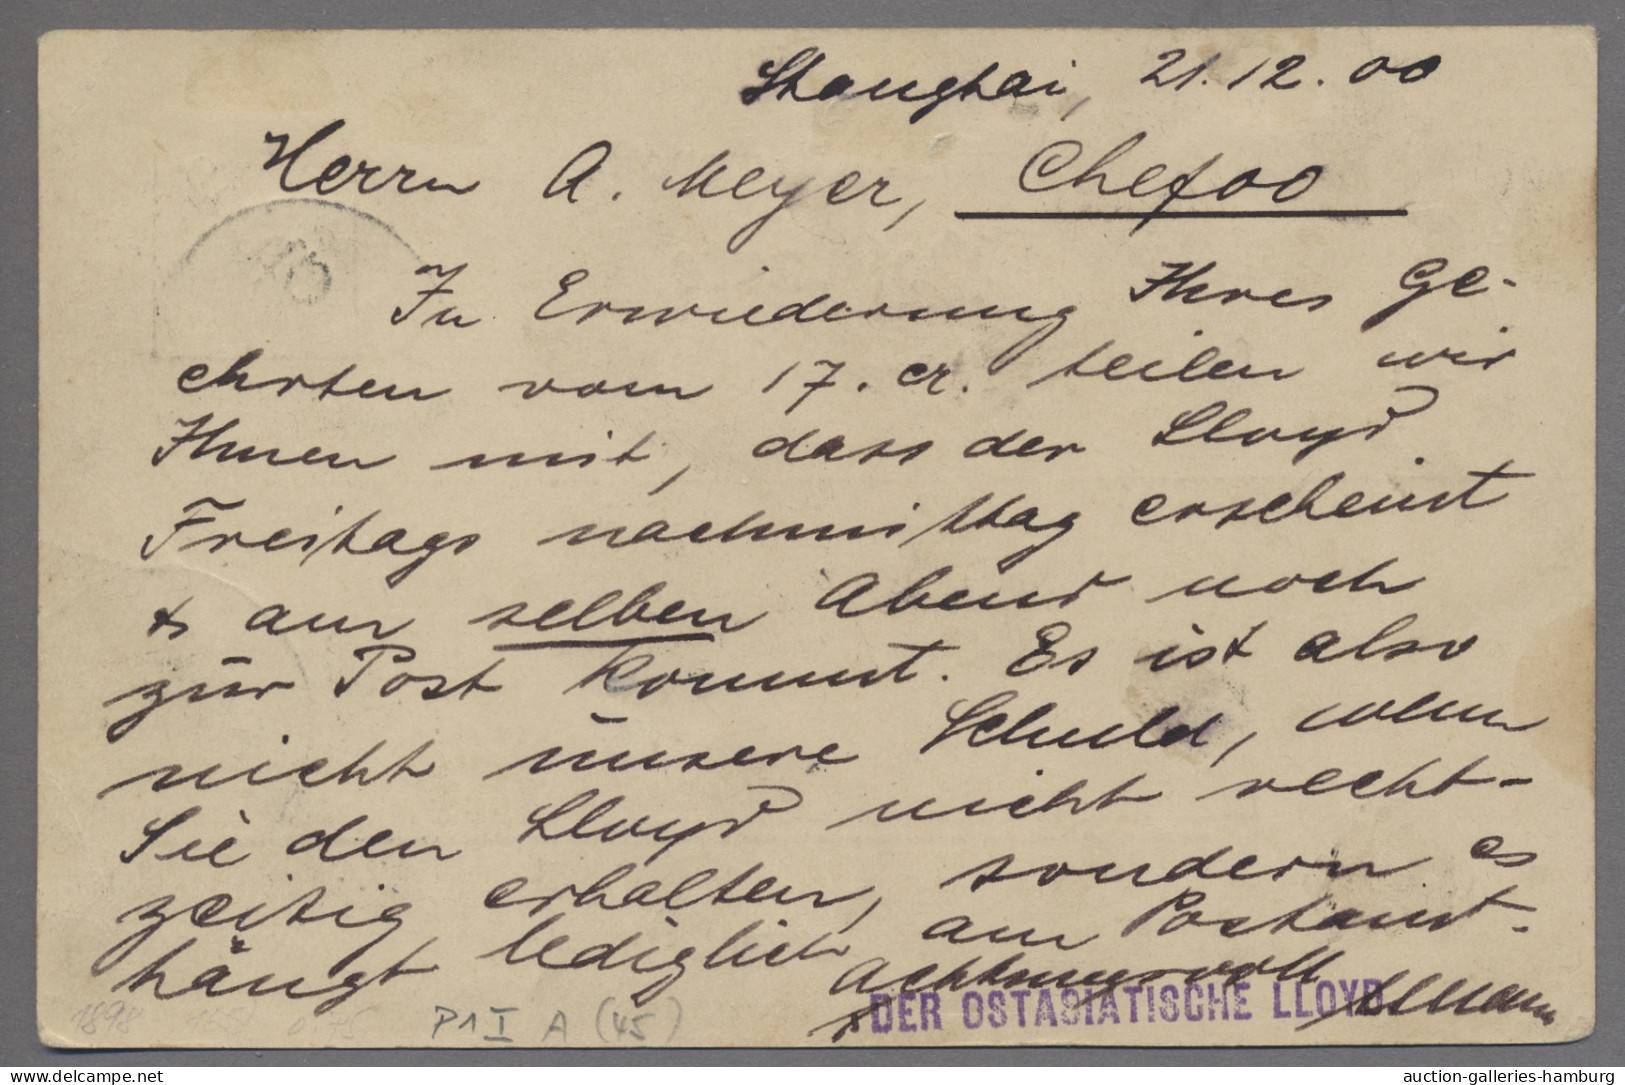 Shanghai, 21.12.00
Herrn A. Meyer, Chefoo
In Erwiederung Ihres Ge-
ehrten vom 17. cr. teilen wir
Ihnen mit, dass der Lloyd
Freitags nachmittag erscheint
& am selben Abend noch
zur Post kommt. Es ist also
nicht unsere Schuld, wenn
Sie den Lloyd nicht recht-
zeitig erhalten, sondern es
hängt lediglich am Postamt.
Achtungsvoll
DER OSTASIATISCHE LLOYD
1898
P1 I A (45)
www.delcampe.net
auction-galleries-hamburg